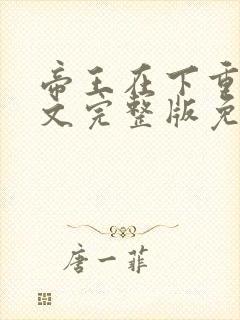 帝王在下重
文完整版免
唐一菲